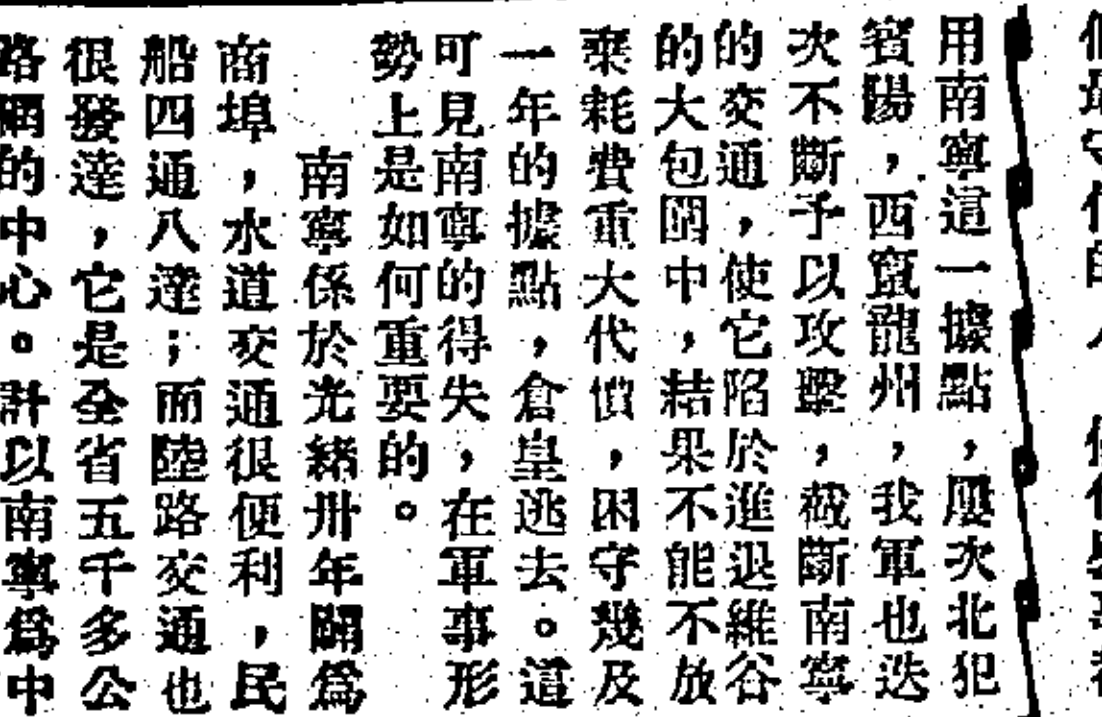 用南寧這一據點，屢次北犯
賓陽，西竄龍州，我軍也迭
次不斷予以攻擊，截斷南寧
的交通，使它陷於進退維谷
的大包圍中，結果不能不放
棄耗費重大代價，困守幾及
一年的據點，倉皇逃去。這
可見南寧的得失，在軍事形
勢上是如何重要的。
南寧係於光緒卅年闢爲
商埠，水道交通很便利，民
船四通八達；而陸路交通也
很發達，它是全省五千多公
路網的中心。計以南寧爲中